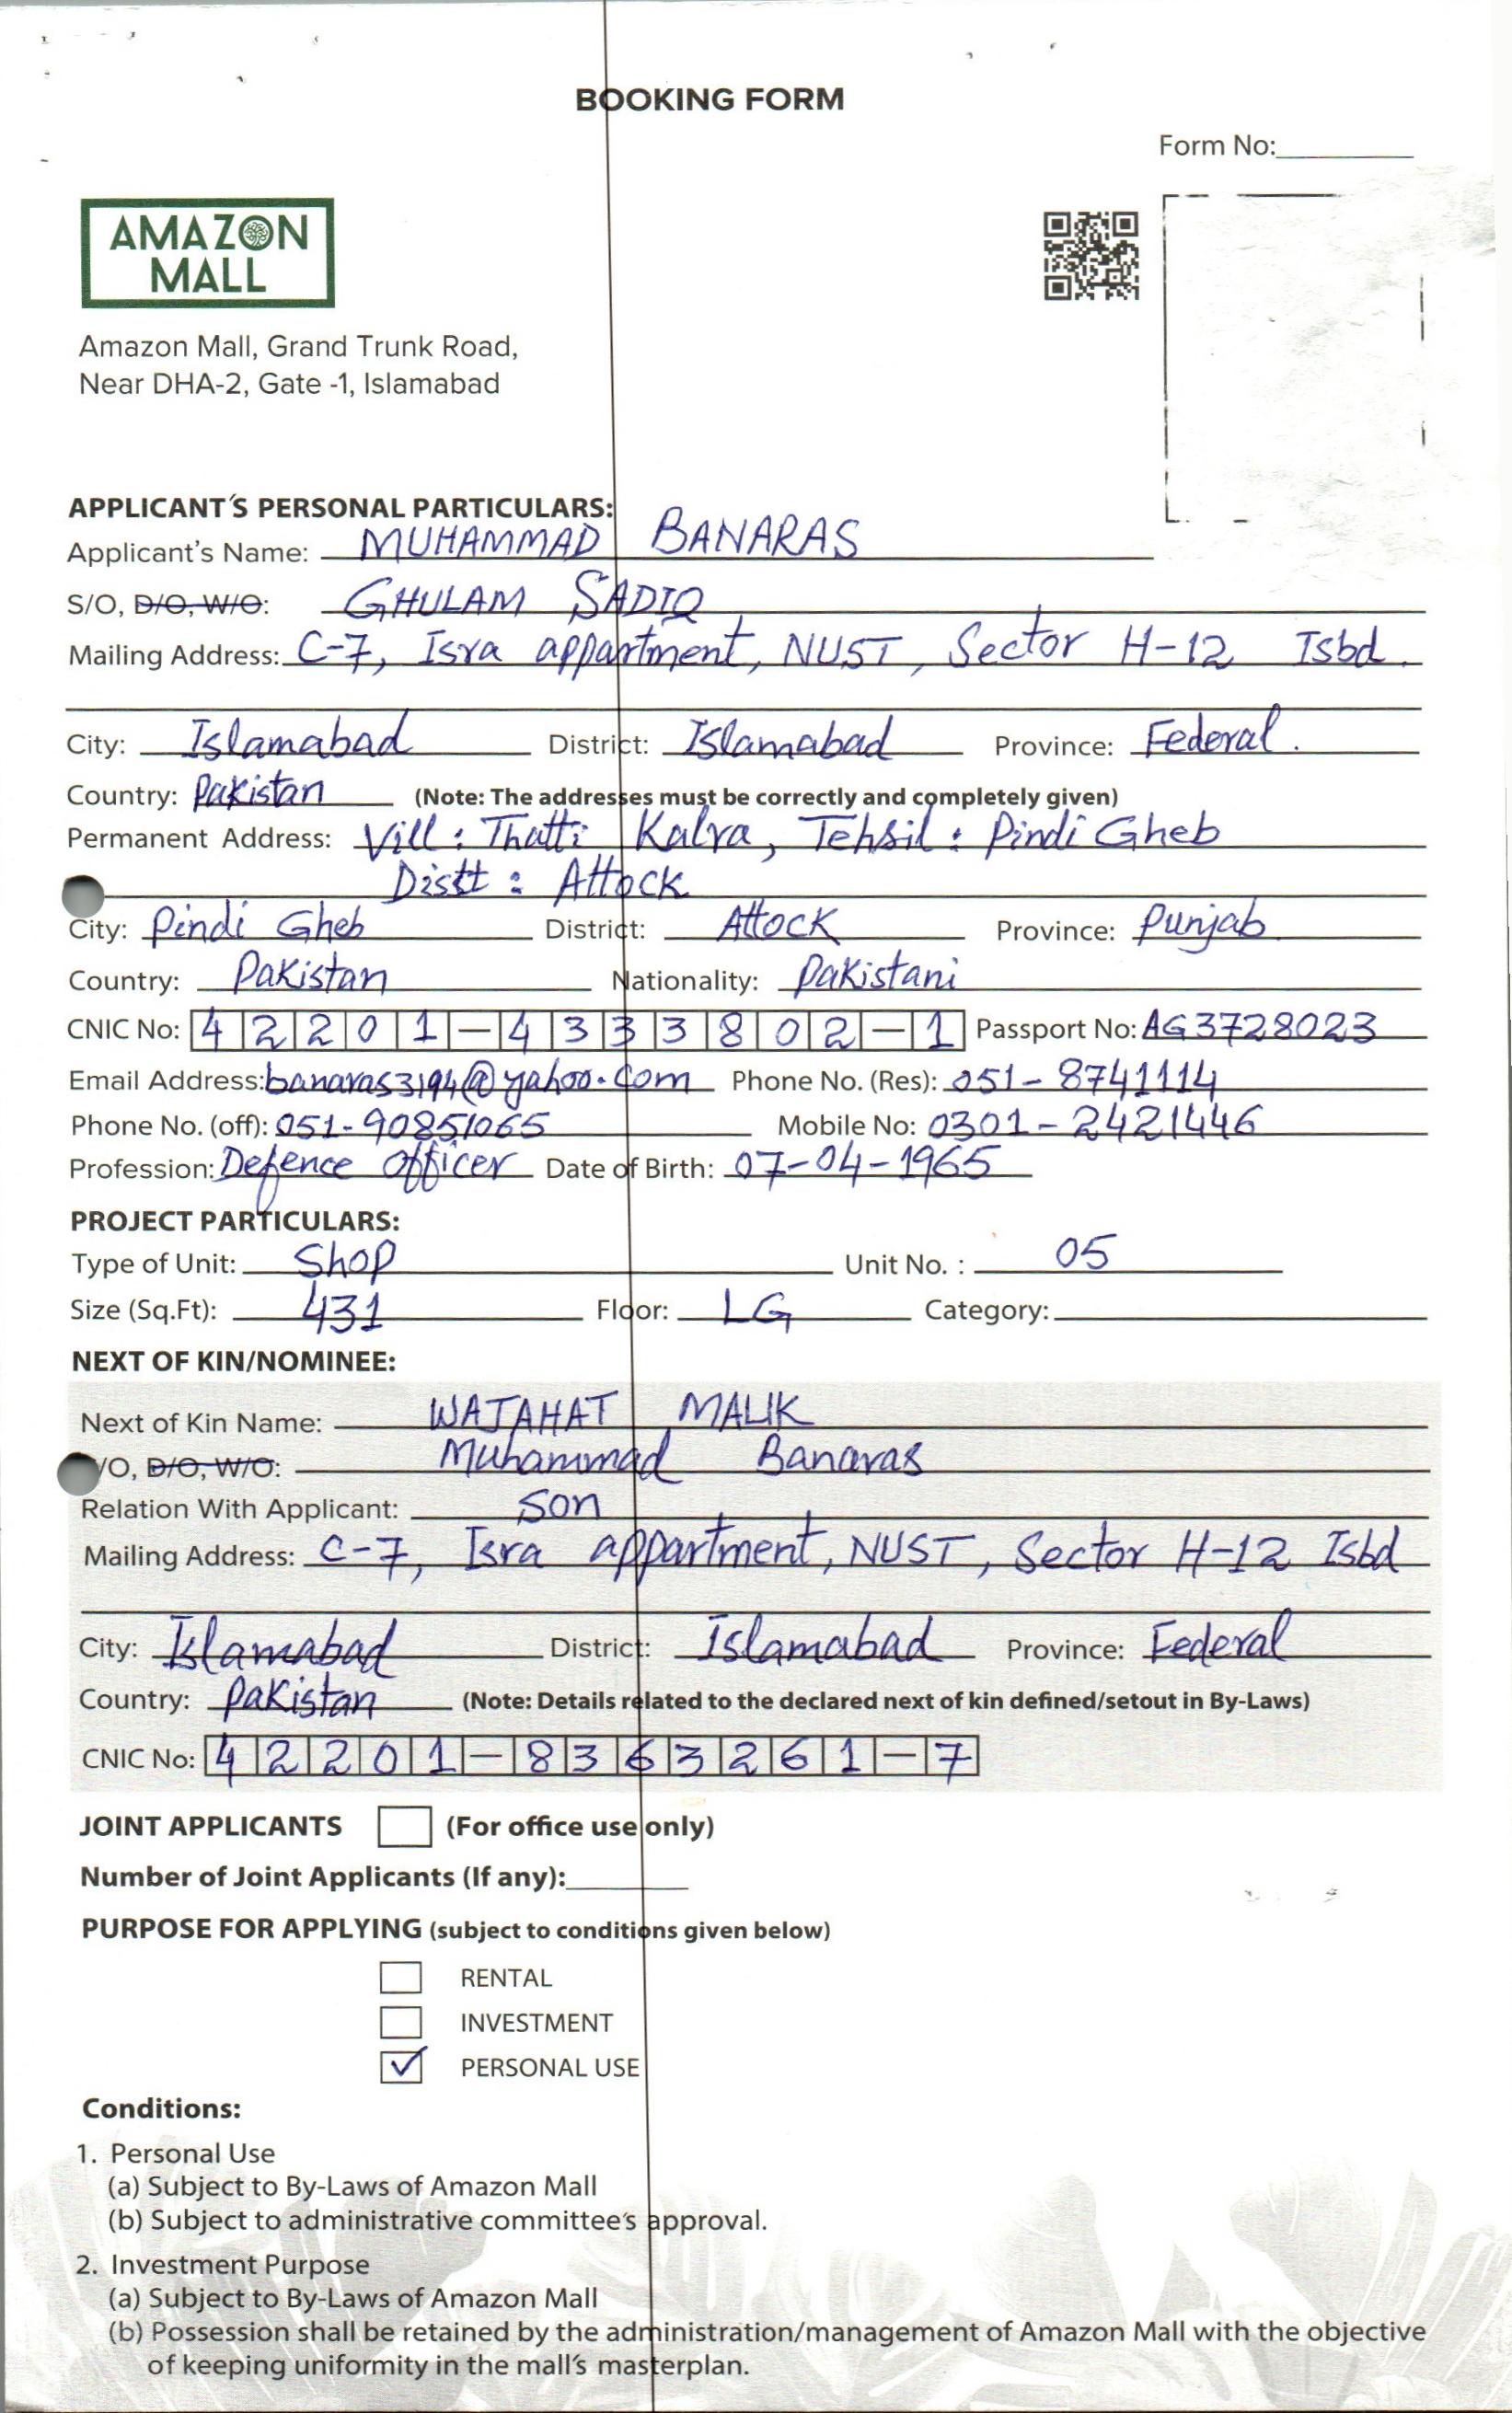 BOOKING FORM
Form No:
AMAZON
MALL
Amazon Mall, Grand Trunk Road,
Near DHA-2, Gate -1, Islamabad
APPLICANT'S PERSONAL PARTICULARS:
Applicant's Name: MUHAMMAD BANARAS
S/O, D/O, W/O: GHULAM SADIQ
Mailing Address: C-7, Isra appartment, NUST, Sector H-12 Isbd.
City: Islamabad District: Islamabad Province: Federal.
Country: Pakistan (Note: The addresses must be correctly and completely given)
Permanent Address: Vill: Thatti Kalra, Tehsil: Pindi Gheb
Distt: Attock
City: Pindi Gheb District: Attock Province: Punjab
Country: Pakistan Nationality: Pakistani
CNIC No: 42201-4333802-1 Passport No: AG3728023
Email Address: banaras3194@yahoo.com Phone No. (Res): 051-8741114
Phone No. (off): 051-90851065 Mobile No: 0301-2421446
Profession: Defence Officer Date of Birth: 07-04-1965
PROJECT PARTICULARS:
Type of Unit: Shop Unit No. : 05
Size (Sq.Ft): 431 Floor: LG Category:
NEXT OF KIN/NOMINEE:
Next of Kin Name: WAJAHAT MALIK
/O, D/O, W/O: Muhammad Banaras
Relation With Applicant: Son
Mailing Address: C-7, Isra appartment, NUST, Sector H-12 Isbd
City: Islamabad District: Islamabad Province: Federal
Country: Pakistan (Note: Details related to the declared next of kin defined/setout in By-Laws)
CNIC No: 42201-8363261-7
JOINT APPLICANTS (For office use only)
Number of Joint Applicants (If any):
PURPOSE FOR APPLYING (subject to conditions given below)
RENTAL
INVESTMENT
PERSONAL USE
Conditions:
1. Personal Use
(a) Subject to By-Laws of Amazon Mall
(b) Subject to administrative committee's approval.
2. Investment Purpose
(a) Subject to By-Laws of Amazon Mall
(b) Possession shall be retained by the administration/management of Amazon Mall with the objective
of keeping uniformity in the mall's masterplan.